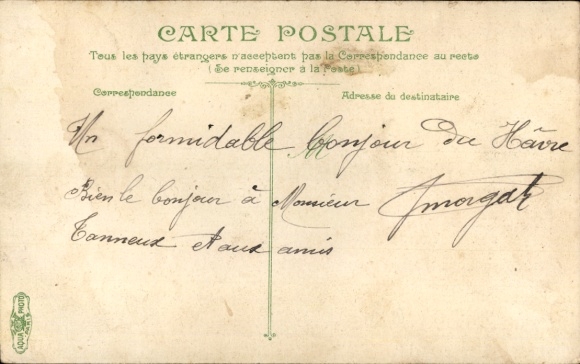 CARTE POSTALE
Tous les pays étrangers n'acceptent pas la Correspondance au recto
(Se renseigner à la Poste)
Correspondance
Adresse du destinataire
Un formidable bonjour du Hâvre
Bien le bonjour à Monsieur
Tanneux et aux amis
AQUA PHOTO
PARIS